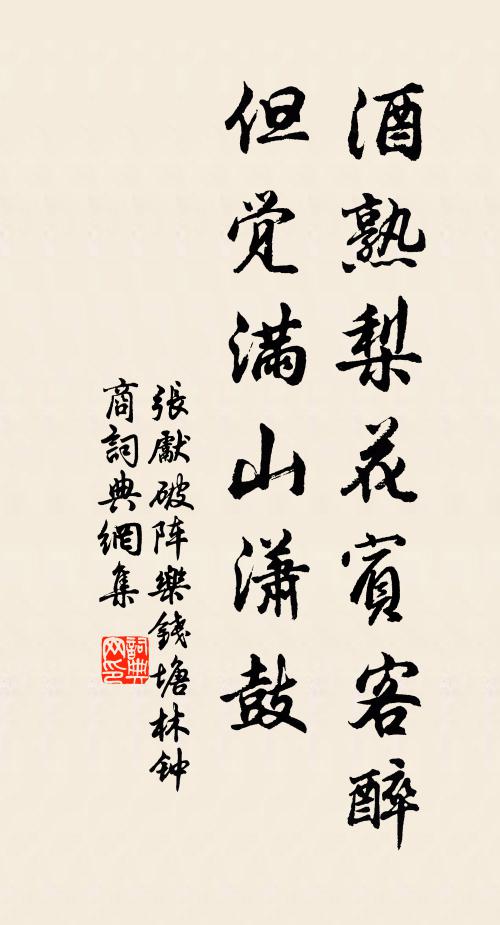 酒熟梨花賓客醉
但觉满山潇鼓
張獻破阵樂錢塘林钟
商詞典網集
詞典
网印